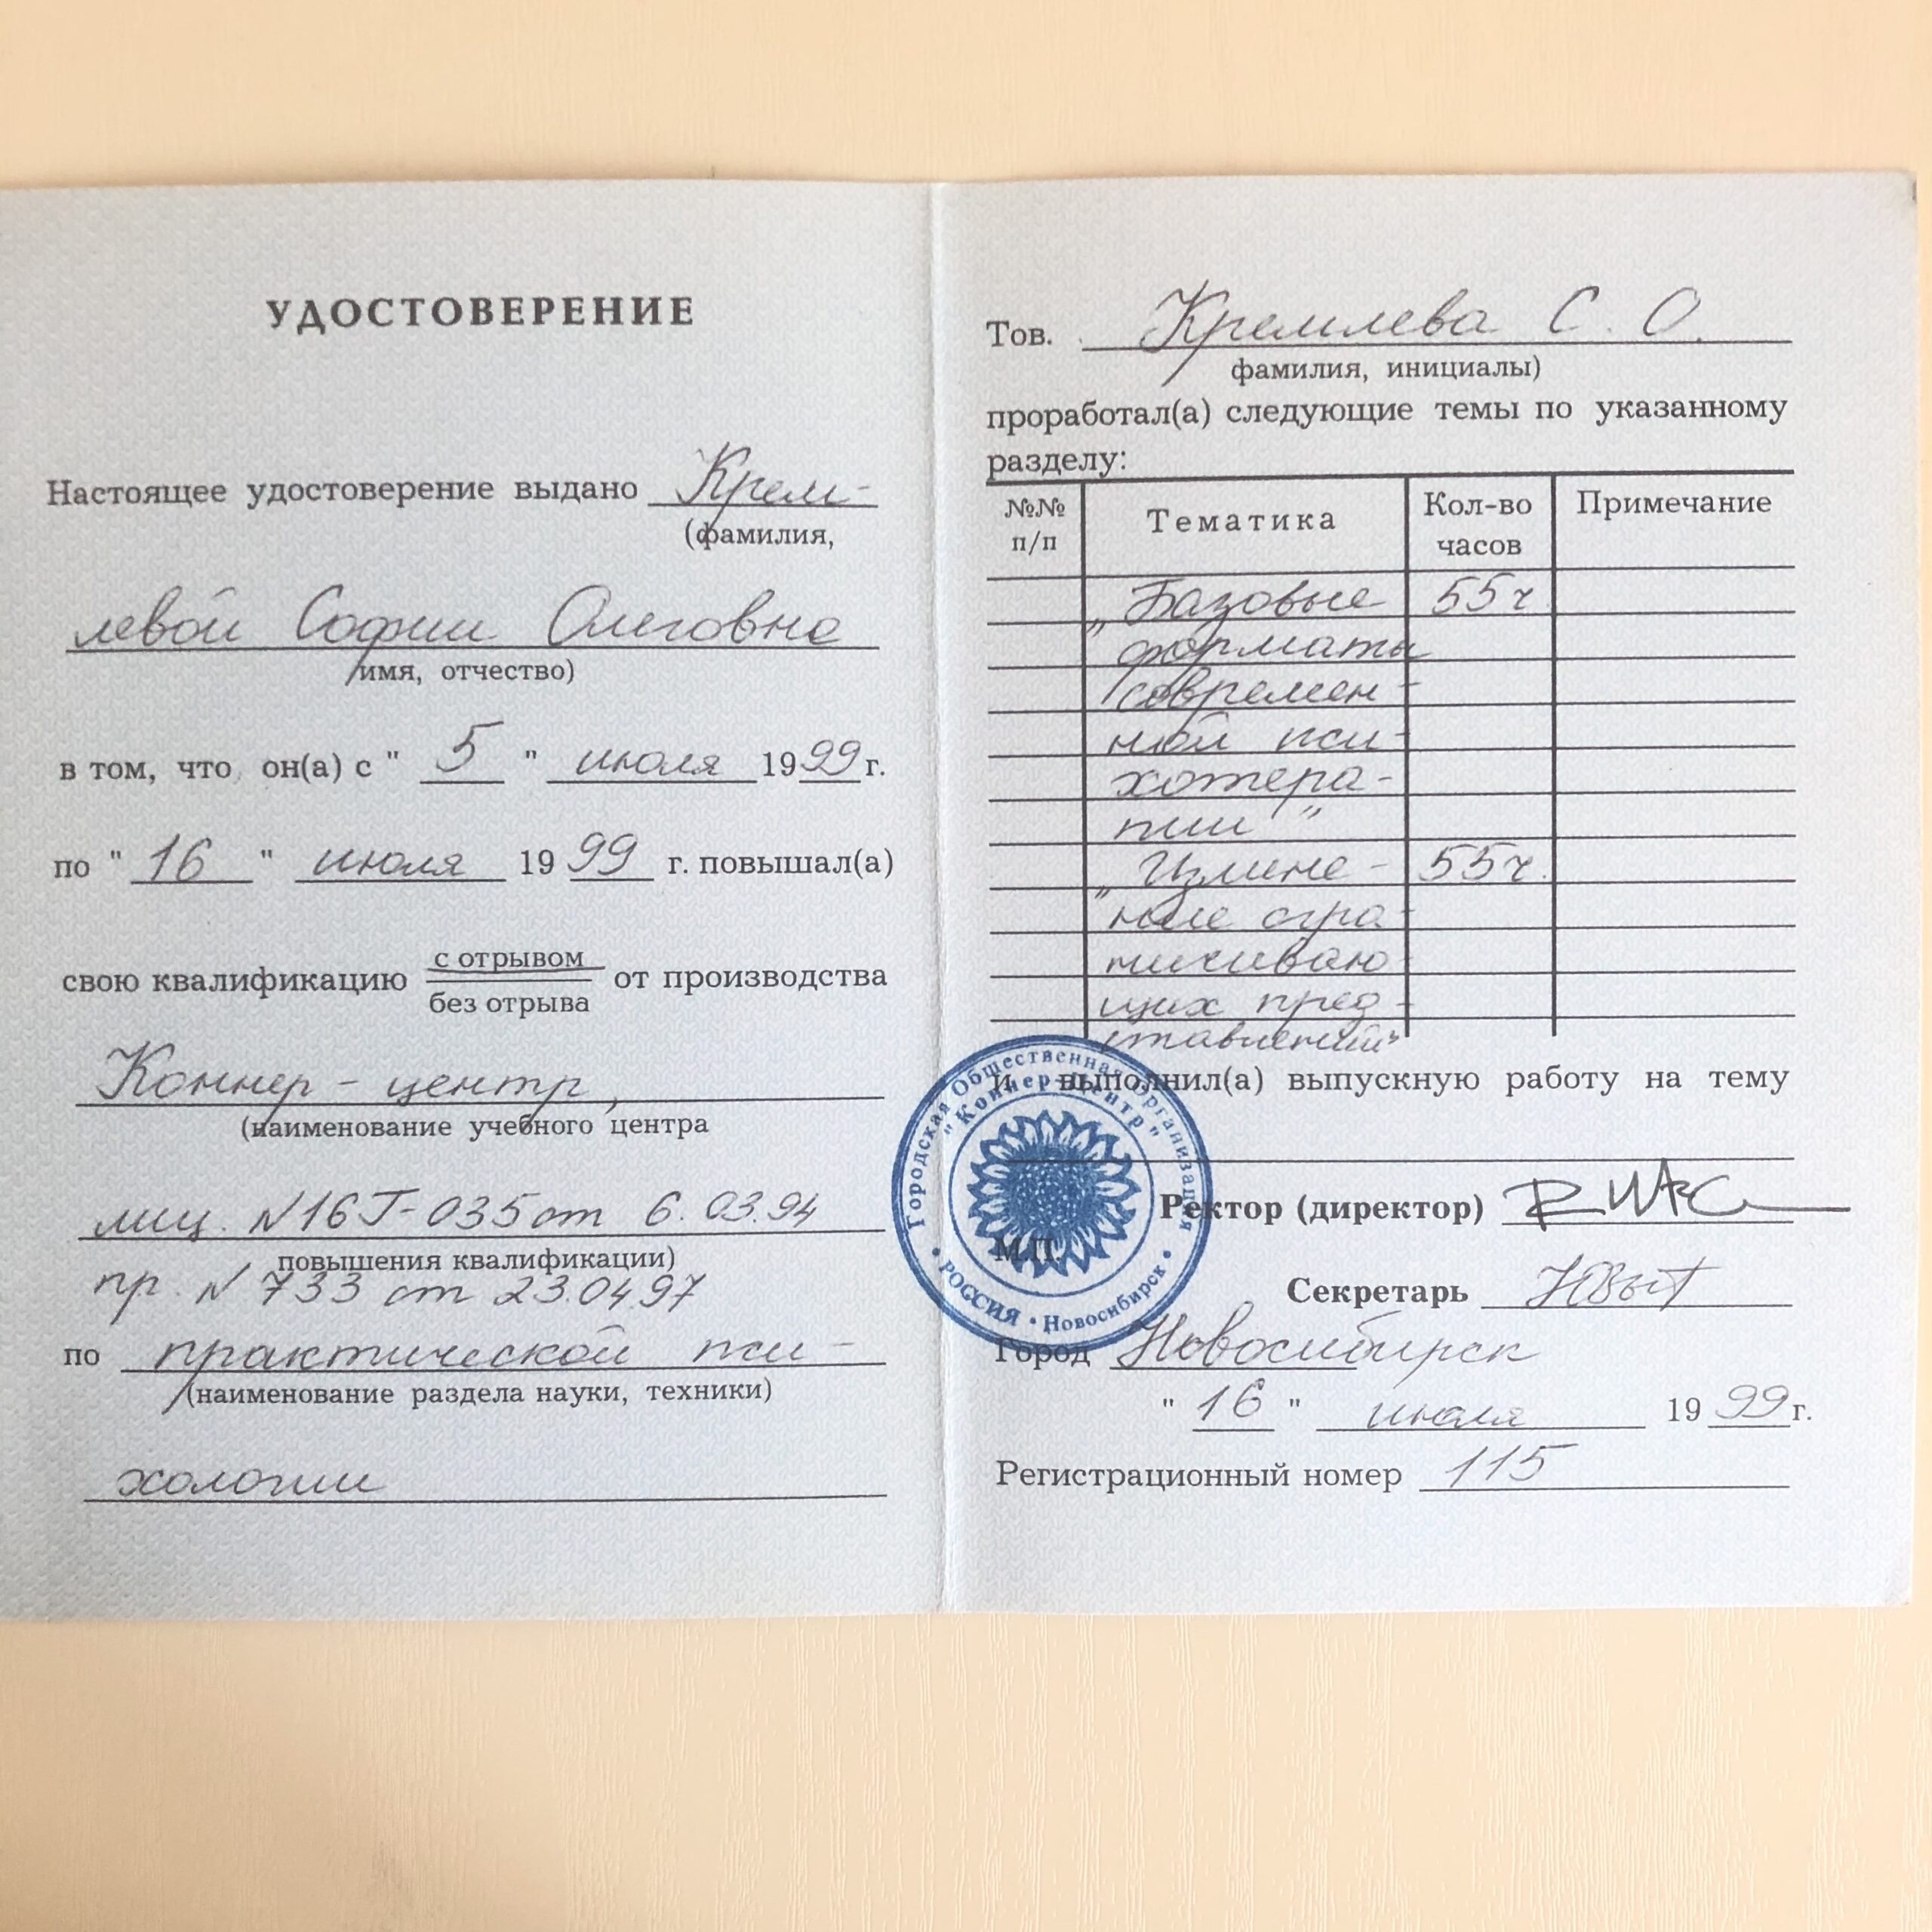 УДОСТОВЕРЕНИЕ
Настоящее удостоверение выдано Крем-
(фамилия,
левой Софии Олеговне
имя, отчество)
в том, что он(а) с " 5 " июля 1999 г.
по " 16 " июля 1999 г. повышал(а)
свою квалификацию с отрывом от производства
без отрыва
Коннер-центр,
(наименование учебного центра
лиц. N16Г-035 от 6.03.94
повышения квалификации)
пр. N 733 от 23.04.97
по практической пси-
(наименование раздела науки, техники)
хологии
Тов. Кремлева С. О.
фамилия, инициалы)
проработал(а) следующие темы по указанному
разделу:
№№ п/п Тематика Кол-во часов Примечание
„Базовые 55ч
форматы
современ-
ной пси-
хотера-
пии"
„Измене- 55ч.
ние огра-
ничиваю-
щих пред-
ставлений"
и выполнил(а) выпускную работу на тему
Городская Общественная Организация
"Коннер-Центр"
• РОССИЯ • Новосибирск •
Ректор (директор)
М.П.
Секретарь
Город Новосибирск
" 16 " июля 1999 г.
Регистрационный номер 115